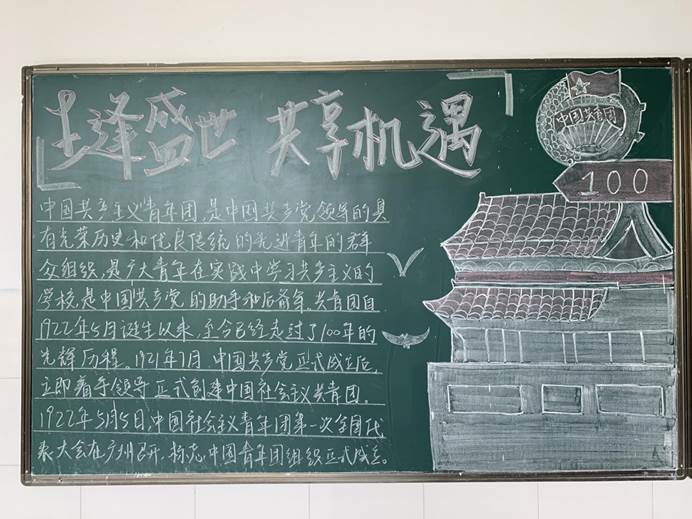 生逢盛世 共享机遇
中国共青团
100
中国共产主义青年团,是中国共产党领导的具
有光荣历史和优良传统的先进青年的群
众组织,是广大青年在实践中学习共产主义的
学校,是中国共产党的助手和后备军。共青团自
1922年5月诞生以来,至今已经走过了100年的
光辉历程。1921年7月 中国共产党正式成立后,
立即着手领导正式创建中国社会主义共青团。
1922年5月5日,中国社会主义青年团第一次全国代
表大会在广州召开,标志中国青年团组织正式成立。